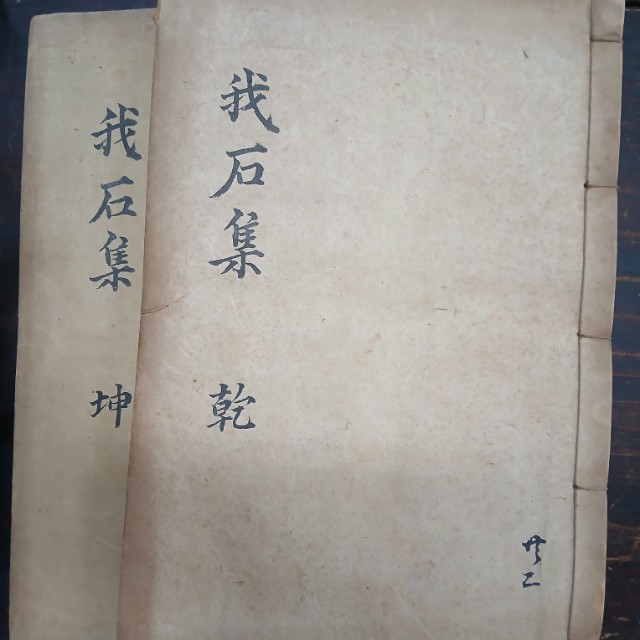 我石集 乾
共二
我石集 坤